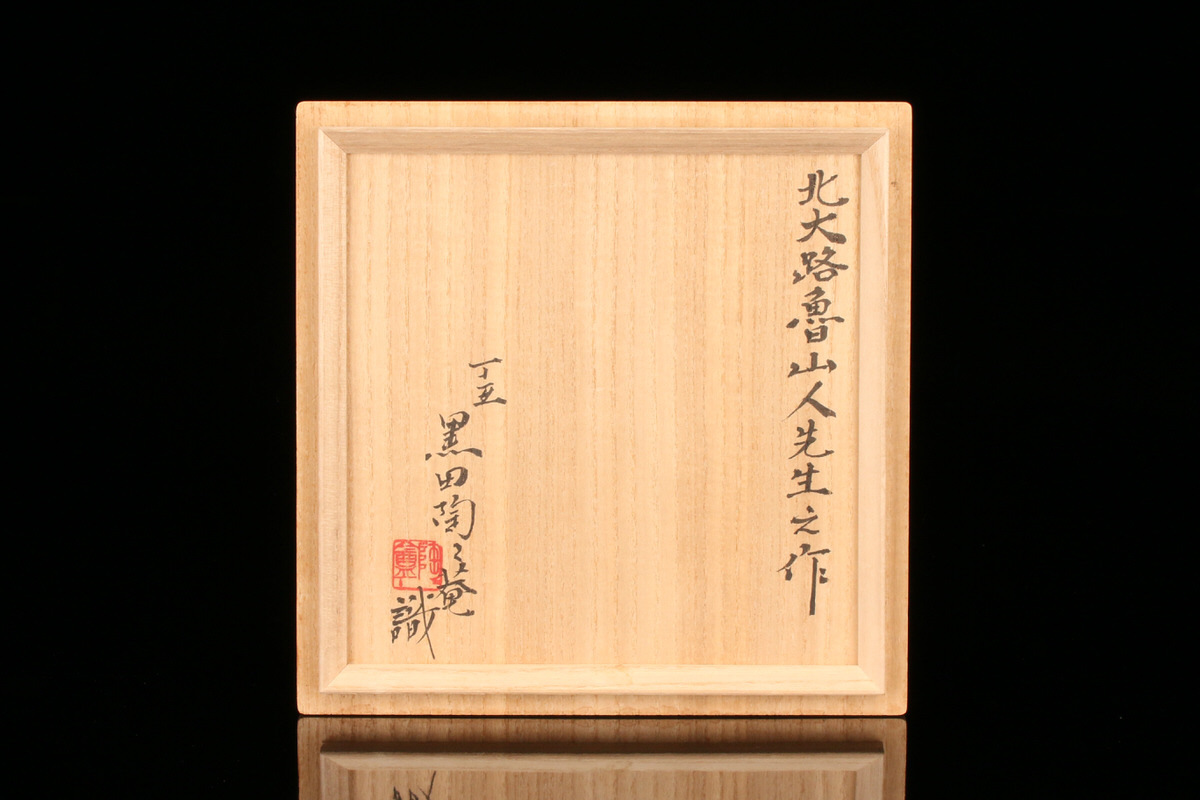 北大路魯山人先生之作
丁丑
黒田陶々庵
識